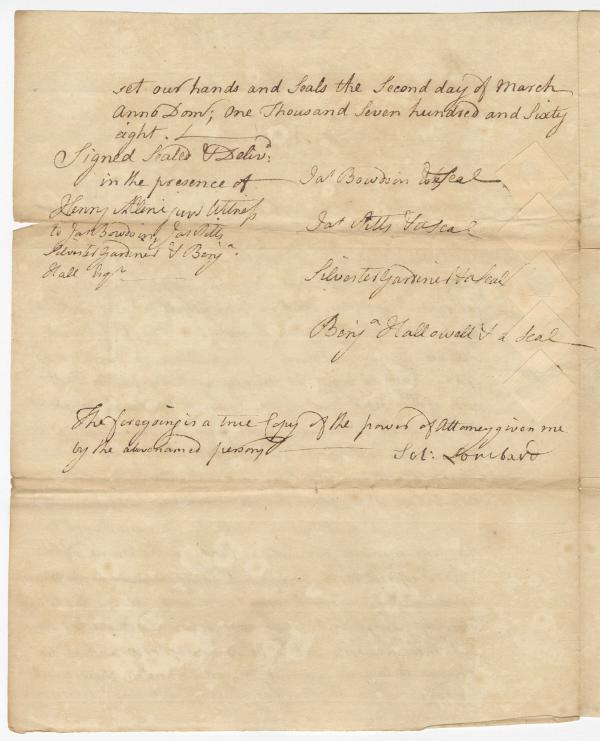 set our hands and Seals the Second day of March
Anno Dom; One Thousand Seven hundred and Sixty
eight.
Signed Sealed & Delivd:
in the presence of
Henry Alline junr Witness
to Jas Bowdoin, Jas Pitts
Silvester Gardiner & Benja.
Hall Esqr
Jas Bowdoin & a Seal
Jas Pitts & a Seal
Silvester Gardiner & a Seal
Benja Hallowell & a Seal
The foregoing is a true Copy of the power of Attorney given me
by the abovenamed persons
Sol: Lombard